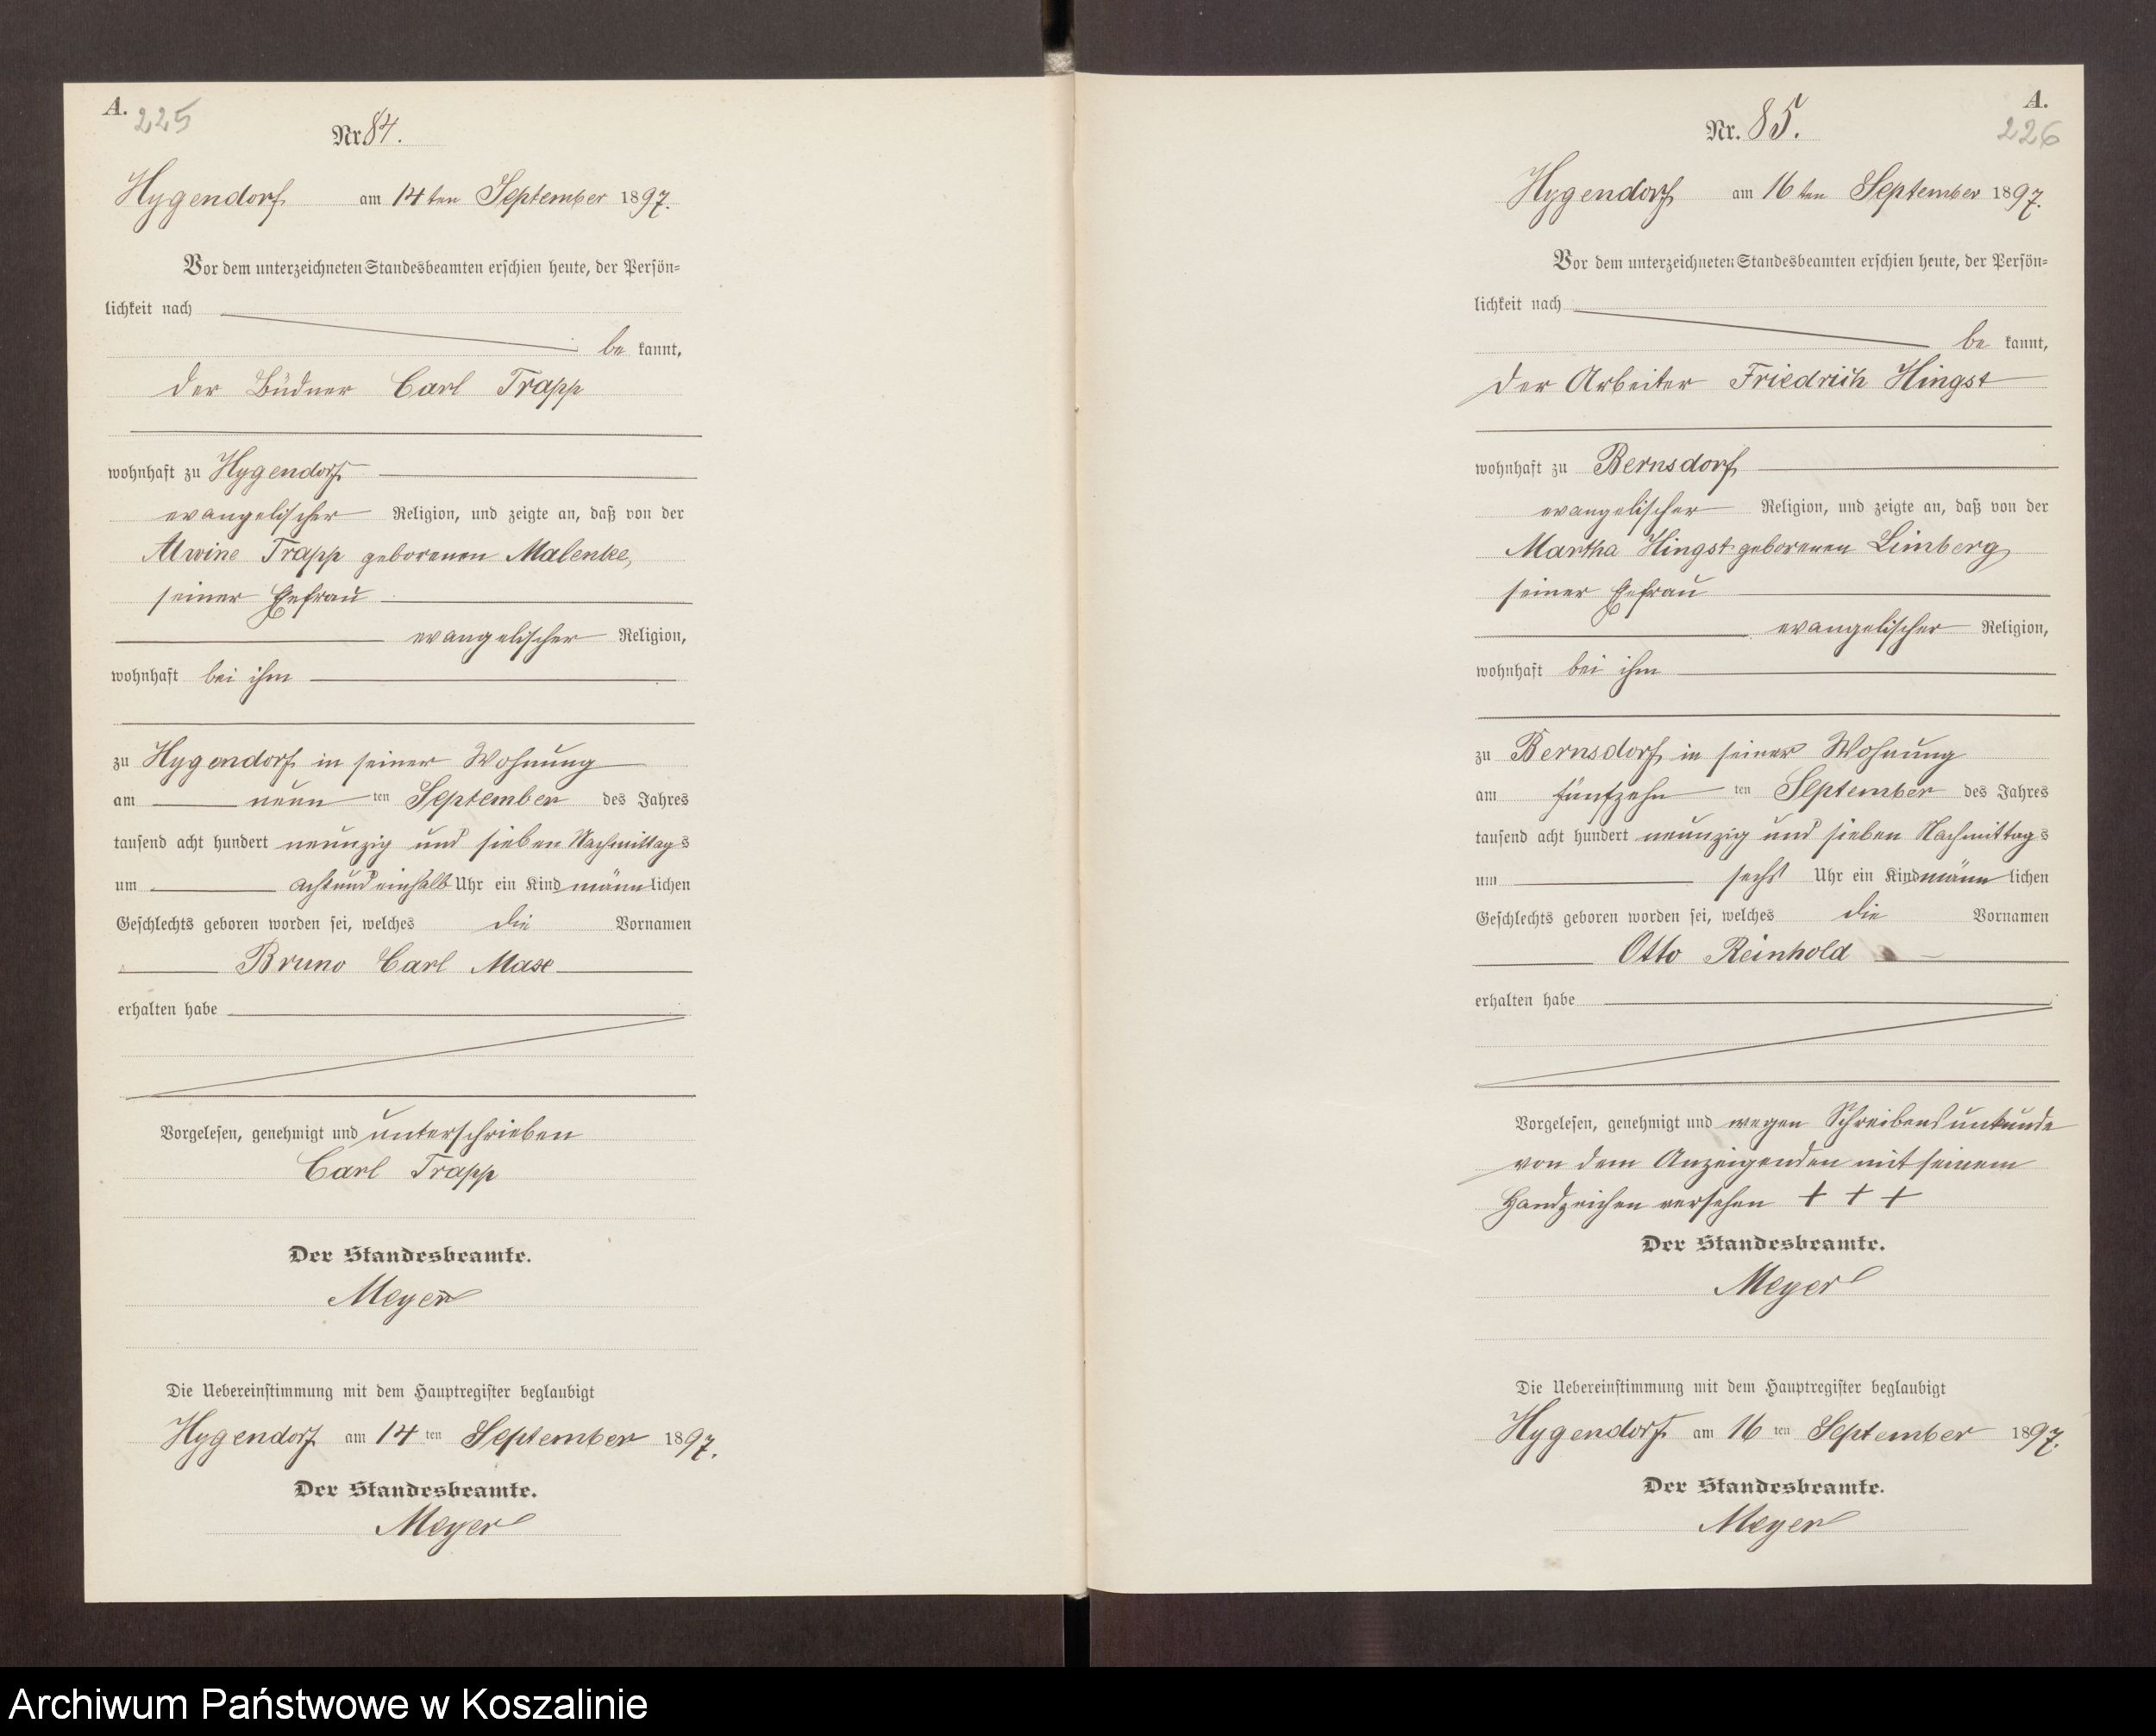 A.
225
Nr. 84.
Hygendorf am 14ten September 1897.
Vor dem unterzeichneten Standesbeamten erschien heute, der Persön=
lichkeit nach
be kannt,
der Büdner Carl Trapp
wohnhaft zu Hygendorf
evangelischer Religion, und zeigte an, daß von der
Alwine Trapp geborenen Malenke,
seiner Ehefrau
evangelischer Religion,
wohnhaft bei ihm
zu Hygendorf in seiner Wohnung
am neun ten September des Jahres
tausend acht hundert neunzig und sieben Nachmittags
um acht und einhalb Uhr ein Kind männlichen
Geschlechts geboren worden sei, welches die Vornamen
Bruno Carl Max
erhalten habe
Vorgelesen, genehmigt und unterschrieben
Carl Trapp
Der Standesbeamte.
Meyer
Die Uebereinstimmung mit dem Hauptregister beglaubigt
Hygendorf am 14 ten September 1897.
Der Standesbeamte.
Meyer
A.
226
Nr. 85.
Hygendorf am 16ten September 1897.
Vor dem unterzeichneten Standesbeamten erschien heute, der Persön=
lichkeit nach
be kannt,
der Arbeiter Friedrich Hingst
wohnhaft zu Bernsdorf
evangelischer Religion, und zeigte an, daß von der
Martha Hingst geborenen Limberg
seiner Ehefrau
evangelischer Religion,
wohnhaft bei ihm
zu Bernsdorf in seiner Wohnung
am fünfzehn ten September des Jahres
tausend acht hundert neunzig und sieben Nachmittags
um sechs Uhr ein Kind männlichen
Geschlechts geboren worden sei, welches die Vornamen
Otto Reinhold
erhalten habe
Vorgelesen, genehmigt und wegen Schreibensunkunde
von dem Anzeigenden mit seinem
Handzeichen versehen + + +
Der Standesbeamte.
Meyer
Die Uebereinstimmung mit dem Hauptregister beglaubigt
Hygendorf am 16 ten September 1897.
Der Standesbeamte.
Meyer
Archiwum Państwowe w Koszalinie